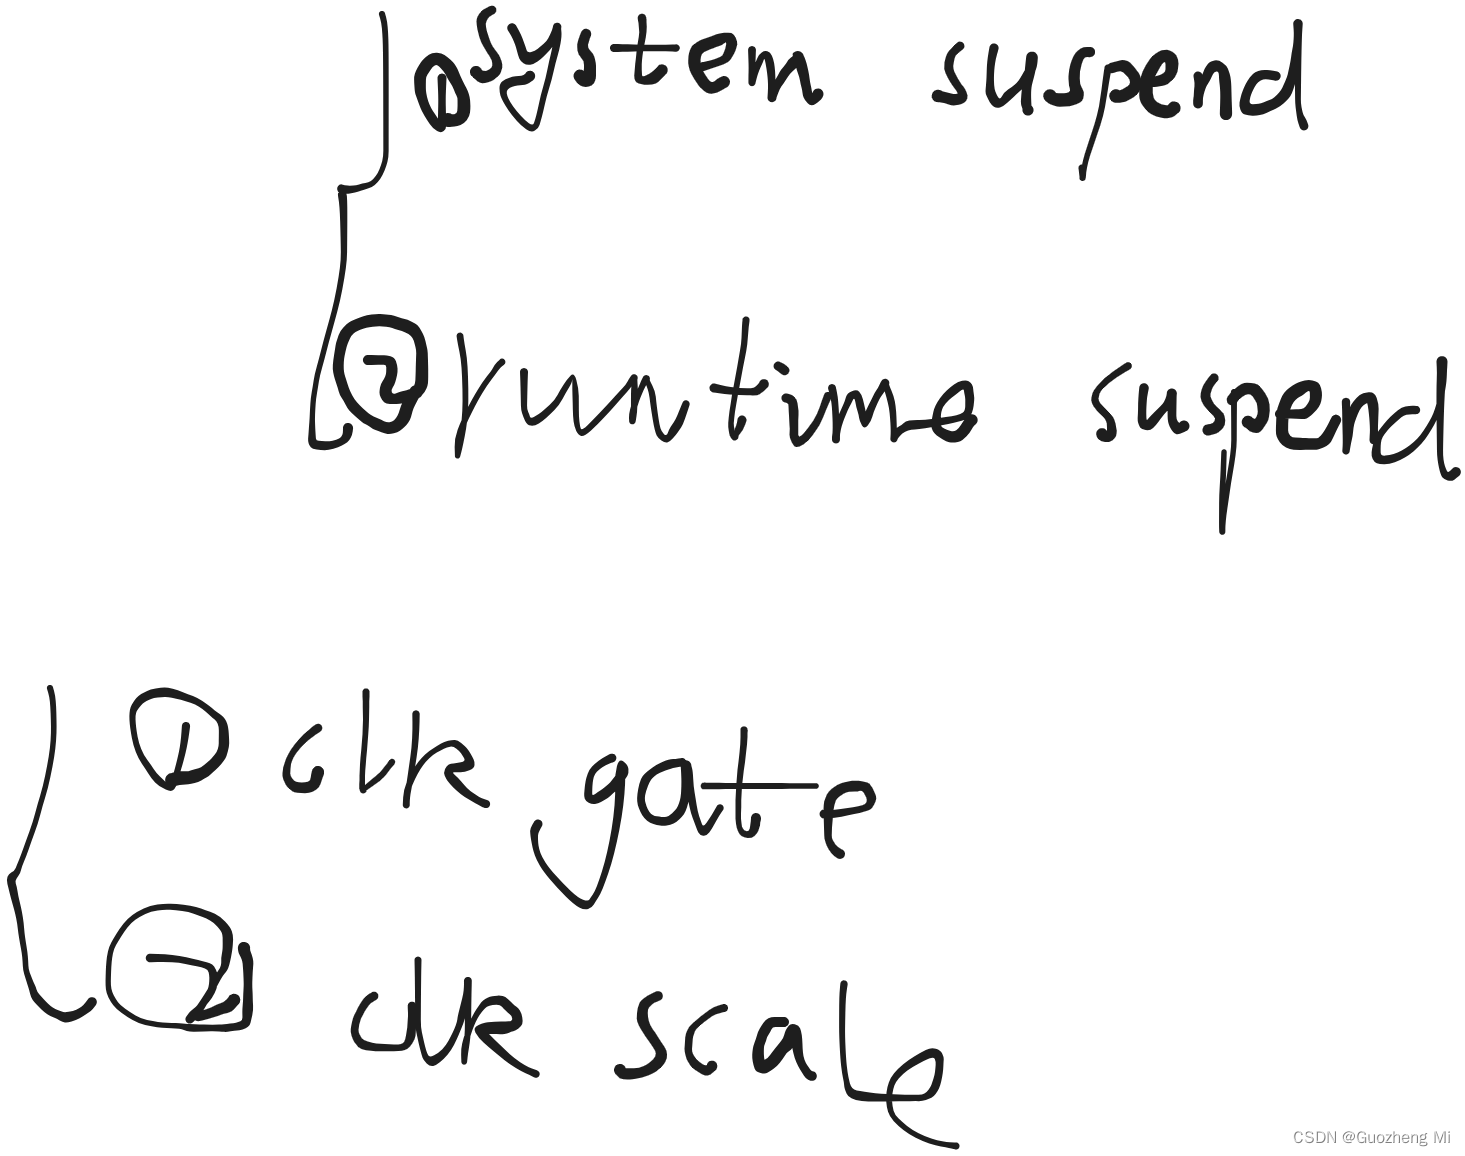 ① system suspend
② runtime suspend
① clk gate
② clk scale
CSDN @Guozheng Mi